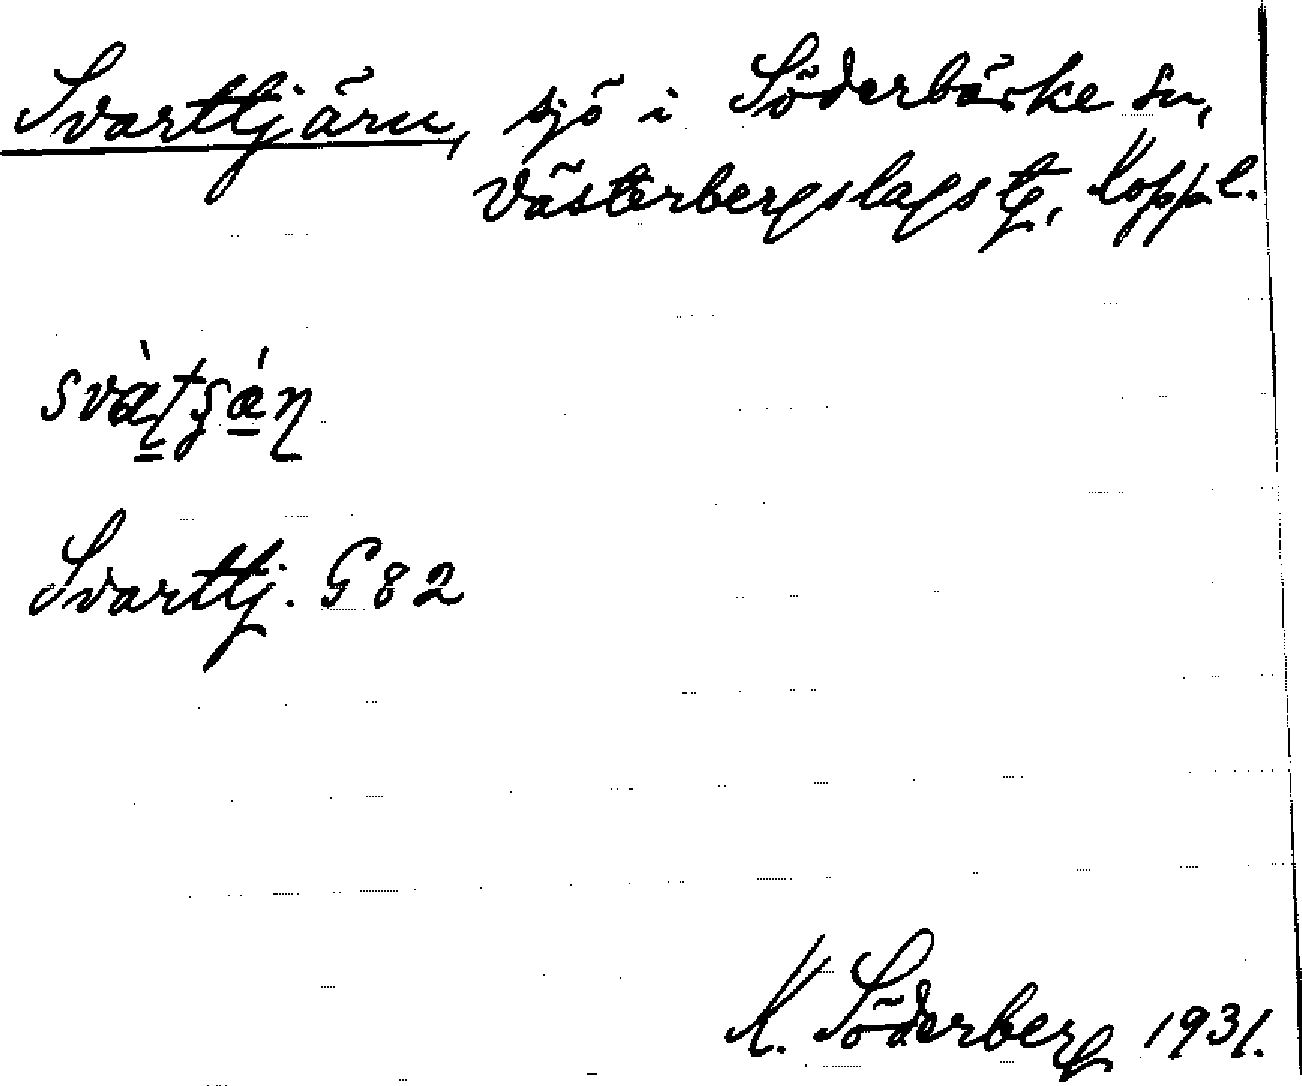 Svarttjärn, sjö i Söderbärke sn,
Västerbergslags tg, Koppl.
svàtʂǽn
Svarttj. G 82
K. Söderberg 1931.